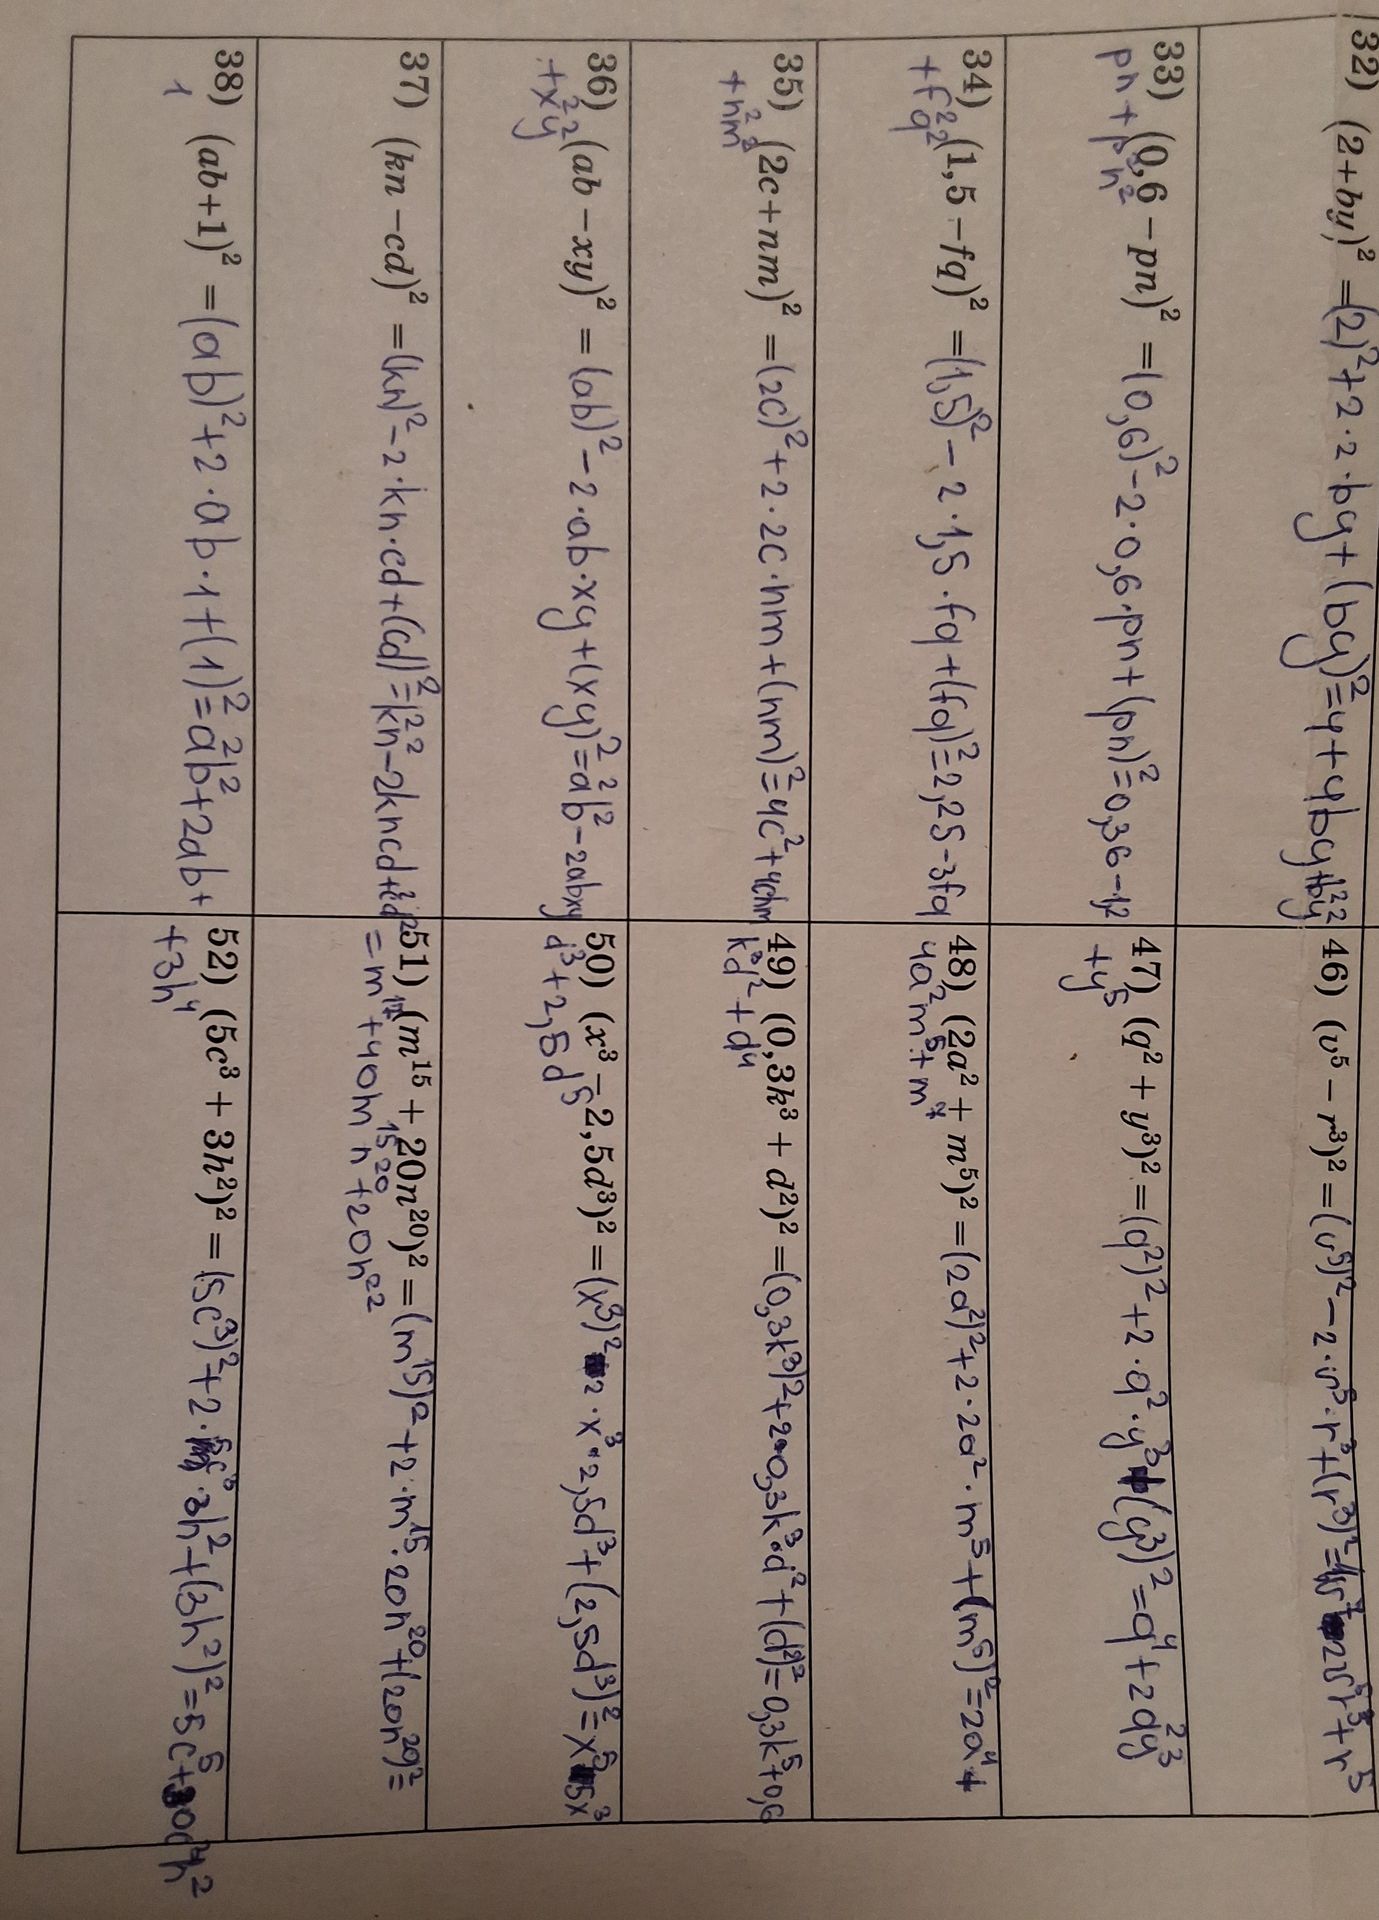 32) (2+by)² = (2)²+2·2·by+(by)²=4+4by+b²y²
33) (0,6-pn)² = (0,6)²-2·0,6·pn+(pn)²=0,36-1,2
pn+p²n²
34) (1,5-fq)² = (1,5)²-2·1,5·fq+(fq)²=2,25-3fq
+f²q²
35) (2c+nm)² = (2c)²+2·2c·nm+(nm)²=4c²+4cnm
+n²m²
36) (ab-xy)² = (ab)²-2·ab·xy+(xy)²=a²b²-2abxy
+x²y²
37) (kn-cd)² = (kn)²-2·kn·cd+(cd)²=k²n²-2kncd+c²d²
38) (ab+1)² = (ab)²+2·ab·1+(1)²=a²b²+2ab+
1
46) (v⁵-r³)² = (v⁵)²-2·v⁵·r³+(r³)²=v⁷-2v⁵r³+r⁵
47) (q²+y³)² = (q²)²+2·q²·y³+(y³)²=q⁴+2q²y³
+y⁵
48) (2a²+m⁵)² = (2a²)²+2·2a²·m⁵+(m⁵)²=2a⁴+
4a²m⁵+m⁷
49) (0,3k³+d²)² = (0,3k³)²+2·0,3k³·d²+(d²)²=0,3k⁵+0,6
k³d²+d⁴
50) (x³-2,5d³)² = (x³)²-2·x³·2,5d³+(2,5d³)²=x⁵-5x³
d³+2,5d⁵
51) (m¹⁵+20n²⁰)² = (m¹⁵)²+2·m¹⁵·20n²⁰+(20n²⁰)²=
=m¹⁷+40m¹⁵n²⁰+20n²²
52) (5c³+3h²)² = (5c³)²+2·5c³·3h²+(3h²)²=5c⁵+30c³h²
+3h⁴